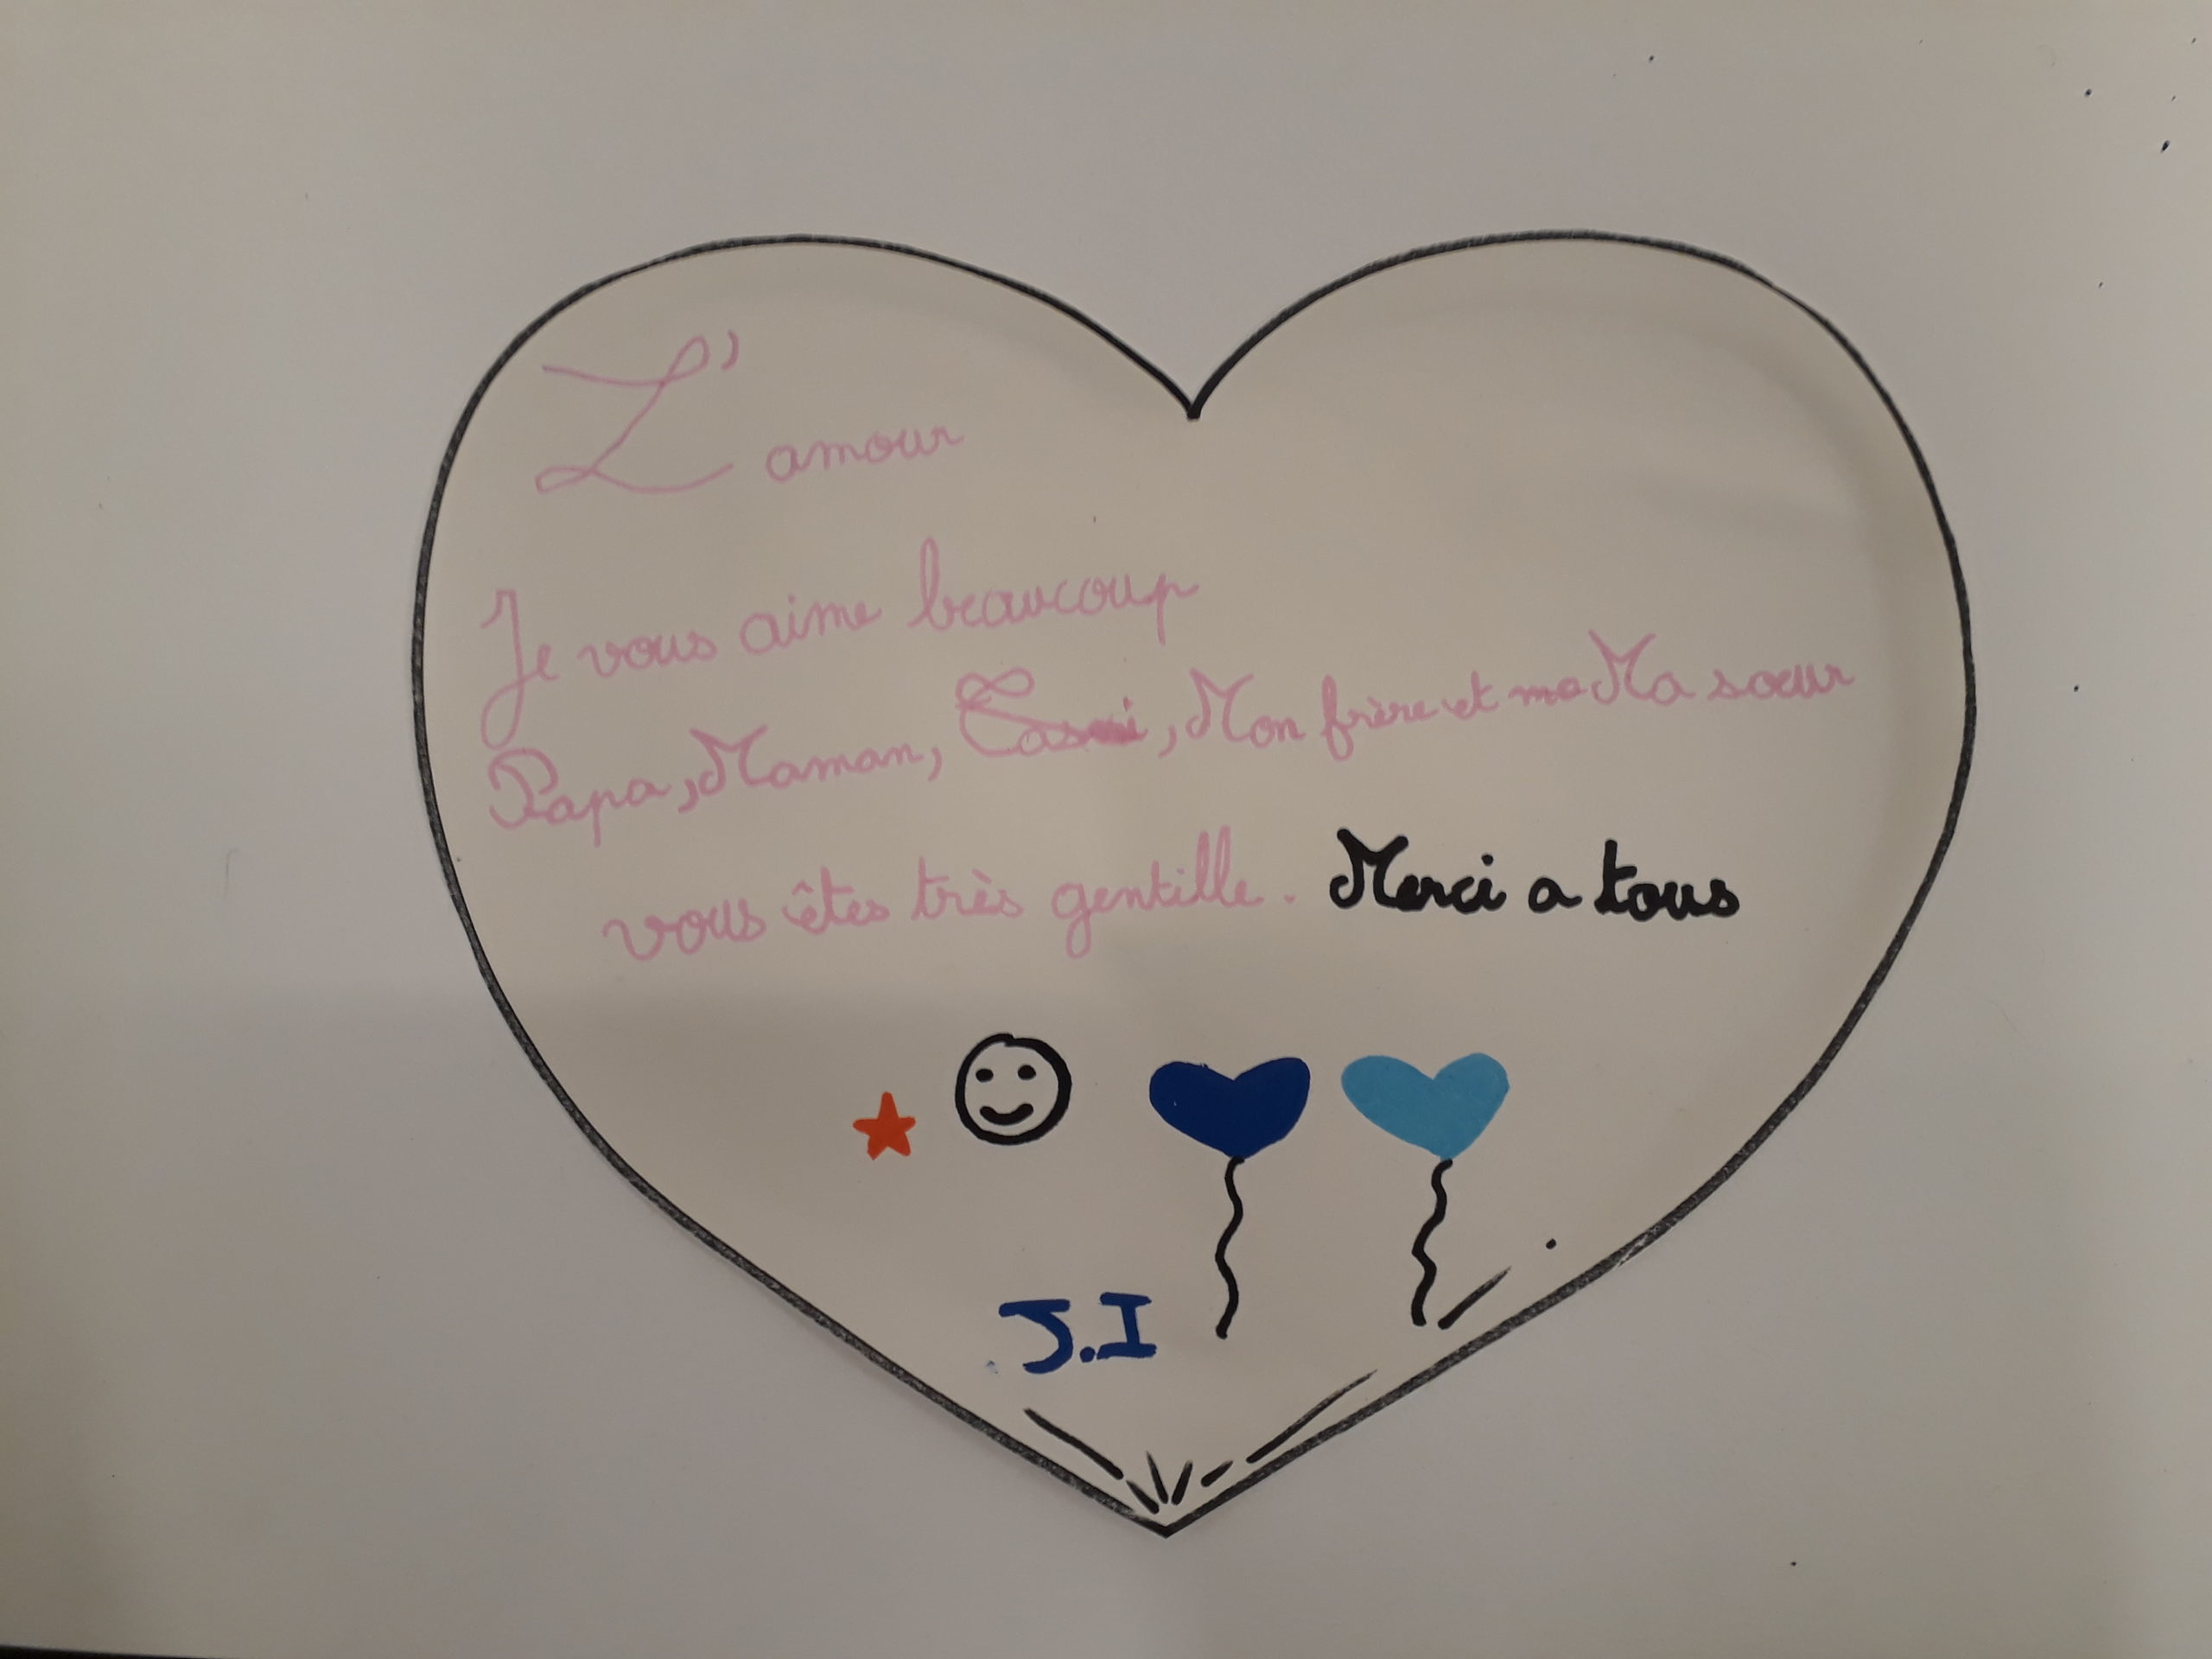 L'amour
Je vous aime beaucoup
Papa, Maman, , Mon frère et ma Ma sœur
vous êtes très gentille. Merci a tous
J.I